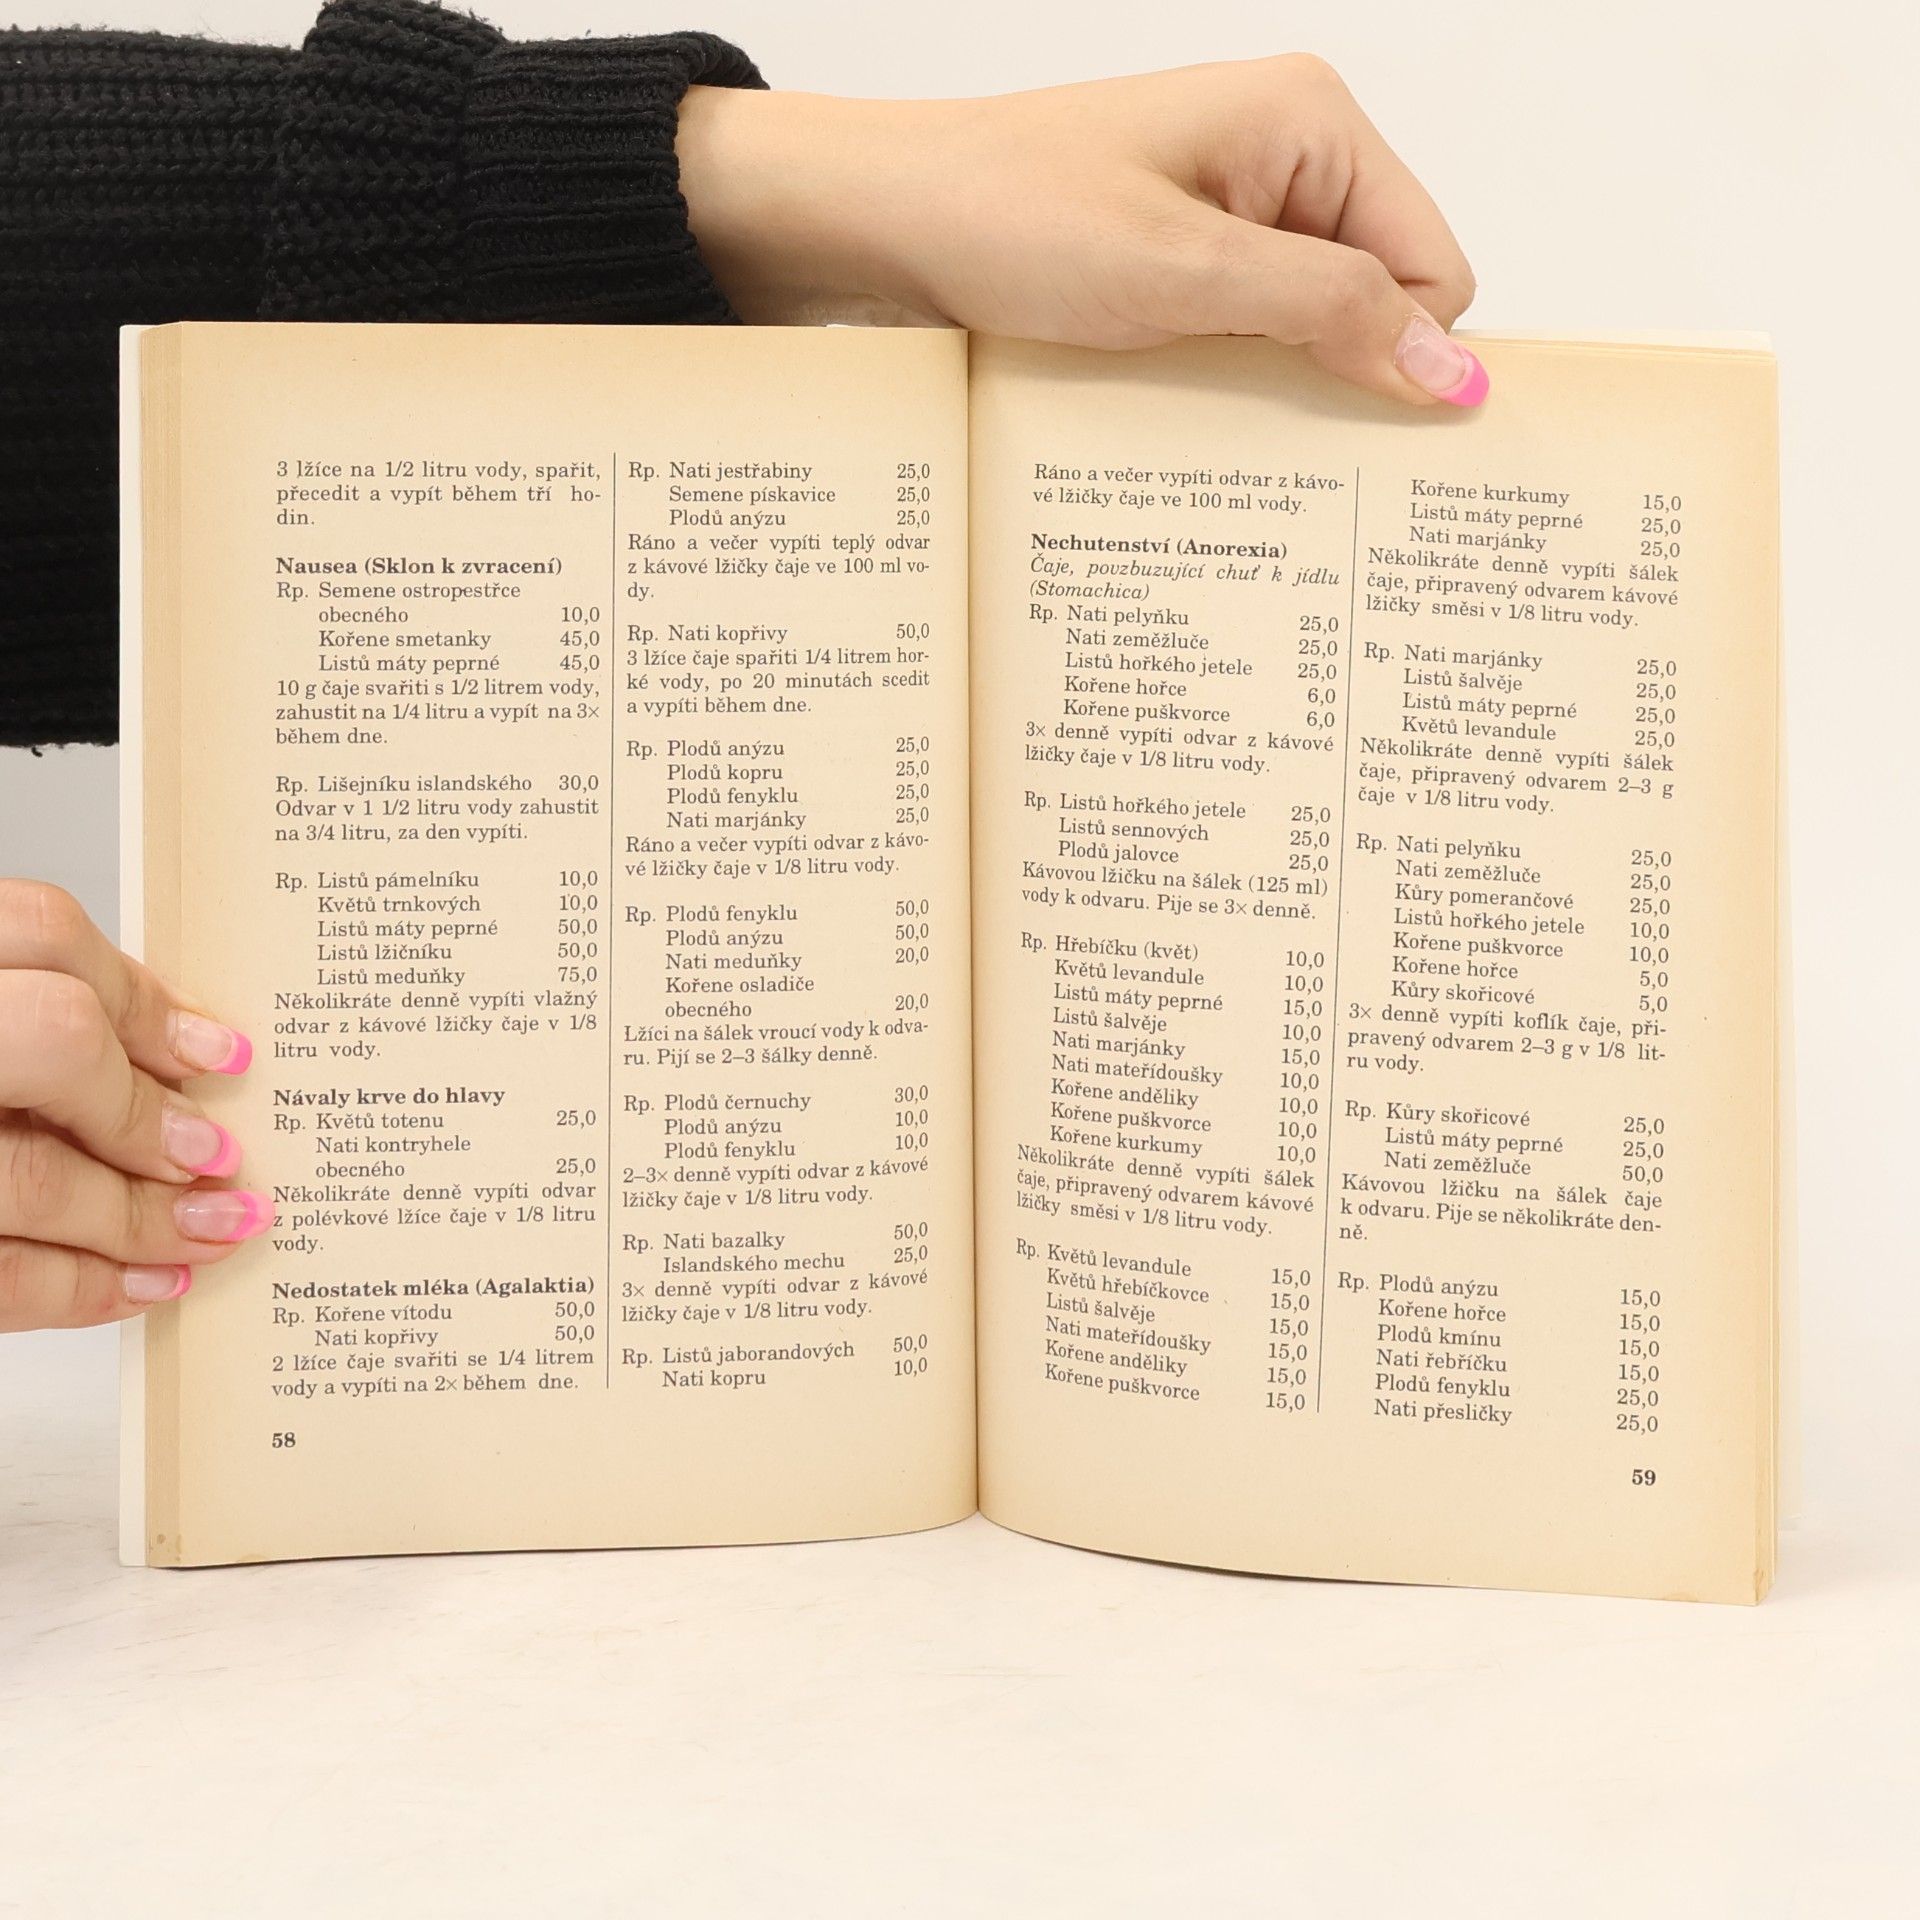 3 lžíce na 1/2 litru vody, spařit,
přecedit a vypít během tří ho-
din.
Nausea (Sklon k zvracení)
Rp. Semene ostropestřce
obecného 10,0
Kořene smetanky 45,0
Listů máty peprné 45,0
10 g čaje svařiti s 1/2 litrem vody,
zahustit na 1/4 litru a vypít na 3×
během dne.
Rp. Lišejníku islandského 30,0
Odvar v 1 1/2 litru vody zahustit
na 3/4 litru, za den vypíti.
Rp. Listů pámelníku 10,0
Květů trnkových 10,0
Listů máty peprné 50,0
Listů lžičníku 50,0
Listů meduňky 75,0
Několikráte denně vypíti vlažný
odvar z kávové lžičky čaje v 1/8
litru vody.
Návaly krve do hlavy
Rp. Květů totenu 25,0
Nati kontryhele
obecného 25,0
Několikráte denně vypíti odvar
z polévkové lžíce čaje v 1/8 litru
vody.
Nedostatek mléka (Agalaktia)
Rp. Kořene vítodu 50,0
Nati kopřivy 50,0
2 lžíce čaje svařiti se 1/4 litrem
vody a vypíti na 2× během dne.
58
Rp. Nati jestřabiny 25,0
Semene pískavice 25,0
Plodů anýzu 25,0
Ráno a večer vypíti teplý odvar
z kávové lžičky čaje ve 100 ml vo-
dy.
Rp. Nati kopřivy 50,0
3 lžíce čaje spařiti 1/4 litrem hor-
ké vody, po 20 minutách scedit
a vypíti během dne.
Rp. Plodů anýzu 25,0
Plodů kopru 25,0
Plodů fenyklu 25,0
Nati marjánky 25,0
Ráno a večer vypíti odvar z kávo-
vé lžičky čaje v 1/8 litru vody.
Rp. Plodů fenyklu 50,0
Plodů anýzu 50,0
Nati meduňky 20,0
Kořene osladiče
obecného 20,0
Lžíci na šálek vroucí vody k odva-
ru. Pijí se 2–3 šálky denně.
Rp. Plodů černuchy 30,0
Plodů anýzu 10,0
Plodů fenyklu 10,0
2–3× denně vypíti odvar z kávové
lžičky čaje v 1/8 litru vody.
Rp. Nati bazalky 50,0
Islandského mechu 25,0
3× denně vypíti odvar z kávové
lžičky čaje v 1/8 litru vody.
Rp. Listů jaborandových 50,0
Nati kopru 10,0
Ráno a večer vypíti odvar z kávo-
vé lžičky čaje ve 100 ml vody.
Nechutenství (Anorexia)
Čaje, povzbuzující chuť k jídlu
(Stomachica)
Rp. Nati pelyňku 25,0
Nati zeměžluče 25,0
Listů hořkého jetele 25,0
Kořene hořce 6,0
Kořene puškvorce 6,0
3× denně vypíti odvar z kávové
lžičky čaje v 1/8 litru vody.
Rp. Listů hořkého jetele 25,0
Listů sennových 25,0
Plodů jalovce 25,0
Kávovou lžičku na šálek (125 ml)
vody k odvaru. Pije se 3× denně.
Rp. Hřebíčku (květ) 10,0
Květů levandule 10,0
Listů máty peprné 15,0
Listů šalvěje 10,0
Nati marjánky 15,0
Nati mateřídoušky 10,0
Kořene anděliky 10,0
Kořene puškvorce 10,0
Kořene kurkumy 10,0
Několikráte denně vypíti šálek
čaje, připravený odvarem kávové
lžičky směsi v 1/8 litru vody.
Rp. Květů levandule 15,0
Květů hřebíčkovce 15,0
Listů šalvěje 15,0
Nati mateřídoušky 15,0
Kořene anděliky 15,0
Kořene puškvorce 15,0
Kořene kurkumy 15,0
Listů máty peprné 25,0
Nati marjánky 25,0
Několikráte denně vypíti šálek
čaje, připravený odvarem kávové
lžičky směsi v 1/8 litru vody.
Rp. Nati marjánky 25,0
Listů šalvěje 25,0
Listů máty peprné 25,0
Květů levandule 25,0
Několikráte denně vypíti šálek
čaje, připravený odvarem 2–3 g
čaje v 1/8 litru vody.
Rp. Nati pelyňku 25,0
Nati zeměžluče 25,0
Kůry pomerančové 25,0
Listů hořkého jetele 10,0
Kořene puškvorce 10,0
Kořene hořce 5,0
Kůry skořicové 5,0
3× denně vypíti koflík čaje, při-
pravený odvarem 2–3 g v 1/8 lit-
ru vody.
Rp. Kůry skořicové 25,0
Listů máty peprné 25,0
Nati zeměžluče 50,0
Kávovou lžičku na šálek čaje
k odvaru. Pije se několikráte den-
ně.
Rp. Plodů anýzu 15,0
Kořene hořce 15,0
Plodů kmínu 15,0
Nati řebříčku 15,0
Plodů fenyklu 25,0
Nati přesličky 25,0
59